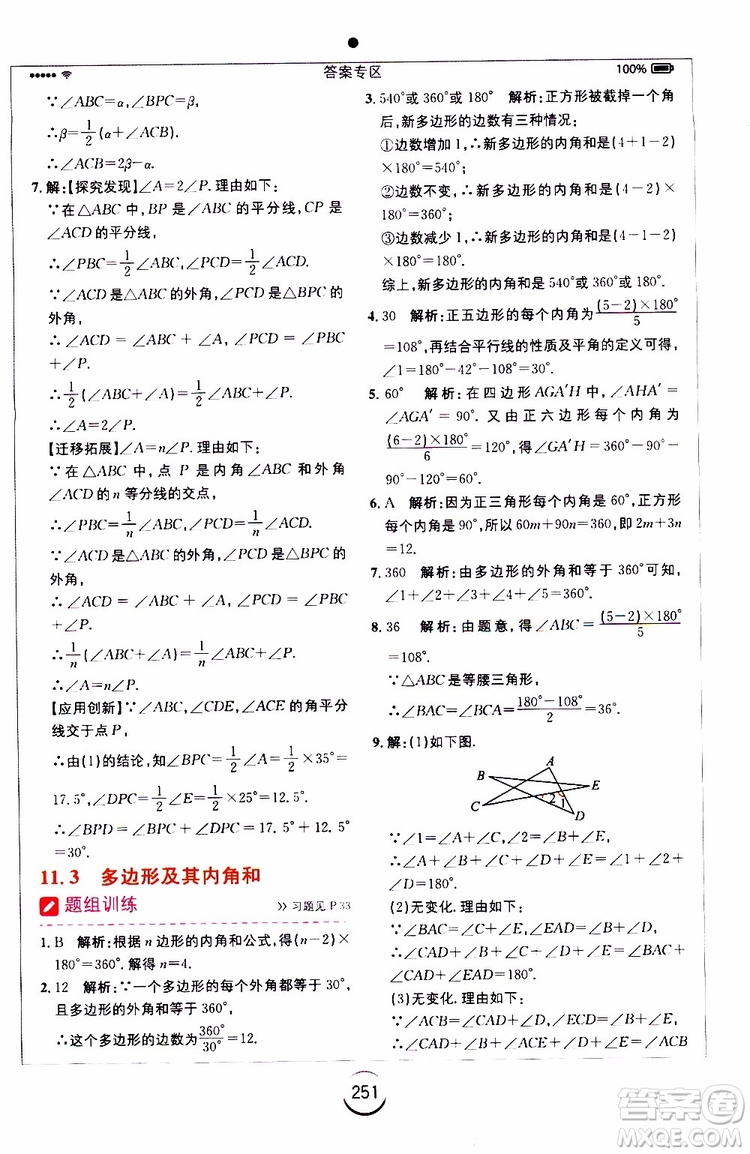 答案专区
100%
∵∠ABC=α,∠ACE=β,
∴β=1/2(α+∠ACB).
∴∠ACB=2β-α.
7. 解:【探究发现】∠A=2∠P. 理由如下:
∵在△ABC中, BP是∠ABC的平分线, CP是
∠ACD的平分线,
∴∠PBC=1/2∠ABC,∠PCD=1/2∠ACD.
∵∠ACD是△ABC的外角,∠PCD是△BPC的
外角,
∴∠ACD=∠ABC+∠A,∠PCD=1/2∠ABC
+∠P.
∴1/2(∠ABC+∠A)=1/2∠ABC+∠P.
∴∠A=2∠P.
【迁移拓展】∠A=n∠P. 理由如下:
∵在△ABC中,点P是内角∠ABC和外角
∠ACD的n等分线的交点,
∴∠PBC=1/n∠ABC,∠PCD=1/n∠ACD.
∵∠ACD是△ABC的外角,∠PCD是△BPC的
外角,
∴∠ACD=∠ABC+∠A,∠PCD=1/n∠ABC
+∠P.
∴1/n(∠ABC+∠A)=1/n∠ABC+∠P.
∴∠A=n∠P.
【应用创新】∵∠ABC,∠CDE,∠ACE的角平分
线交于点P,
∴由(1)的结论,知∠BPC=1/2∠A=1/2×35°=
17.5°,∠DPC=1/2∠E=1/2×25°=12.5°.
∴∠BPD=∠BPC+∠DPC=17.5°+12.5°=
30°.
11.3 多边形及其内角和
题组训练 》习题见P33
1. B 解析:根据n边形的内角和公式,得(n-2)×
180°=360°. 解得n=4.
2. 12 解析:∵一个多边形的每个外角都等于30°,
且多边形的外角和等于360°,
∴这个多边形的边数为360°/30°=12.
3. 540°或360°或180° 解析:正方形被截掉一个角
后,新多边形的边数有三种情况:
①边数增加1,∴新多边形的内角和是(4+1-2)
×180°=540°;
②边数不变,∴新多边形的内角和是(4-2)×
180°=360°;
③边数减少1,∴新多边形的内角和是(4-1-2)
×180°=180°.
综上,新多边形的内角和是540°或360°或180°.
4. 30 解析:正五边形的每个内角为(5-2)×180°/5
=108°,再结合平行线的性质及平角的定义可得,
∠1=180°-42°-108°=30°.
5. 60° 解析:在四边形AGA′H中,∠AHA′=
∠AGA′=90°. 又由正六边形的每个内角为
(6-2)×180°/6=120°,得∠GA′H=360°-90°-
90°-120°=60°.
6. A 解析:因为正三角形每个内角是60°,正方形
每个内角是90°,所以60m+90n=360,即2m+3n
=12.
7. 360 解析:由多边形的外角和等于360°可知,
∠1+∠2+∠3+∠4+∠5=360°.
8. 36 解析:由题意,得∠ABC=(5-2)×180°/5
=108°.
∵△ABC是等腰三角形,
∴∠BAC=∠BCA=(180°-108°)/2=36°.
9. 解:(1)如下图.
A
B
E
C
2 1
D
∵∠1=∠A+∠C,∠2=∠B+∠E,
∴∠A+∠B+∠C+∠D+∠E=∠1+∠2+∠D
=180°.
(2)无变化. 理由如下:
∵∠BAC=∠C+∠E,∠EAD=∠B+∠D,
∴∠CAD+∠B+∠C+∠D+∠E=∠BAC+
∠CAD+∠EAD=180°.
(3)无变化. 理由如下:
∵∠ACB=∠CAD+∠D,∠ECD=∠B+∠E,
∴∠CAD+∠B+∠ACE+∠D+∠E=∠ACB
251
答案卷